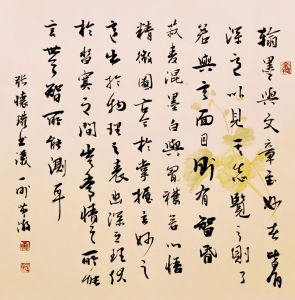 翰墨與文章至妙者皆有
深意以見其志覽之則了
若與言面目則有智昏
菽麦混墨白與胷襟若心悟
精微圖古今於掌握玄妙之
意出於物理之表幽深之理伏
於杳冥之間豈常情之所能
言世之智所能測
張懷瓘書議一則